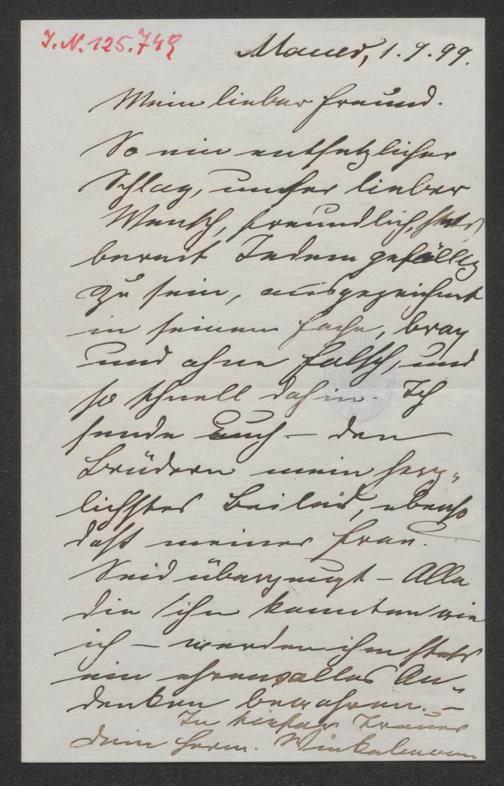 I.N. 125.749
Mauer, 1.9.99.
Mein lieber Freund.
So ein entsetzlicher
Schlag, unser lieber
Mensch, freundlich, stets
bereit Jedem gefällig
zu sein, ausgezeichnet
in seinem Fache, brav
und ohne Falsch, und
so schnell dahin. Ich
sende Euch – den
Brüdern mein herz-
lichstes Beileid, ebenso
das meiner Frau.
Seid überzeugt – Alle
die ihn kannten wie
ich – werden ihm stets
ein ehrenvolles An-
denken bewahren. –
In tiefer Trauer
Dein Herm. Winkelmann